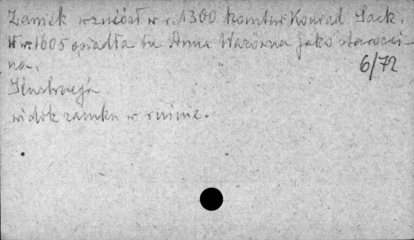 Zamek wzniósł w r. 1300 komtur Konrad Sack.
W r. 1605 osiadła tu Anna Wazówna jako starości
na.
6/72
Ilustracja
widok zamku w ruinie.